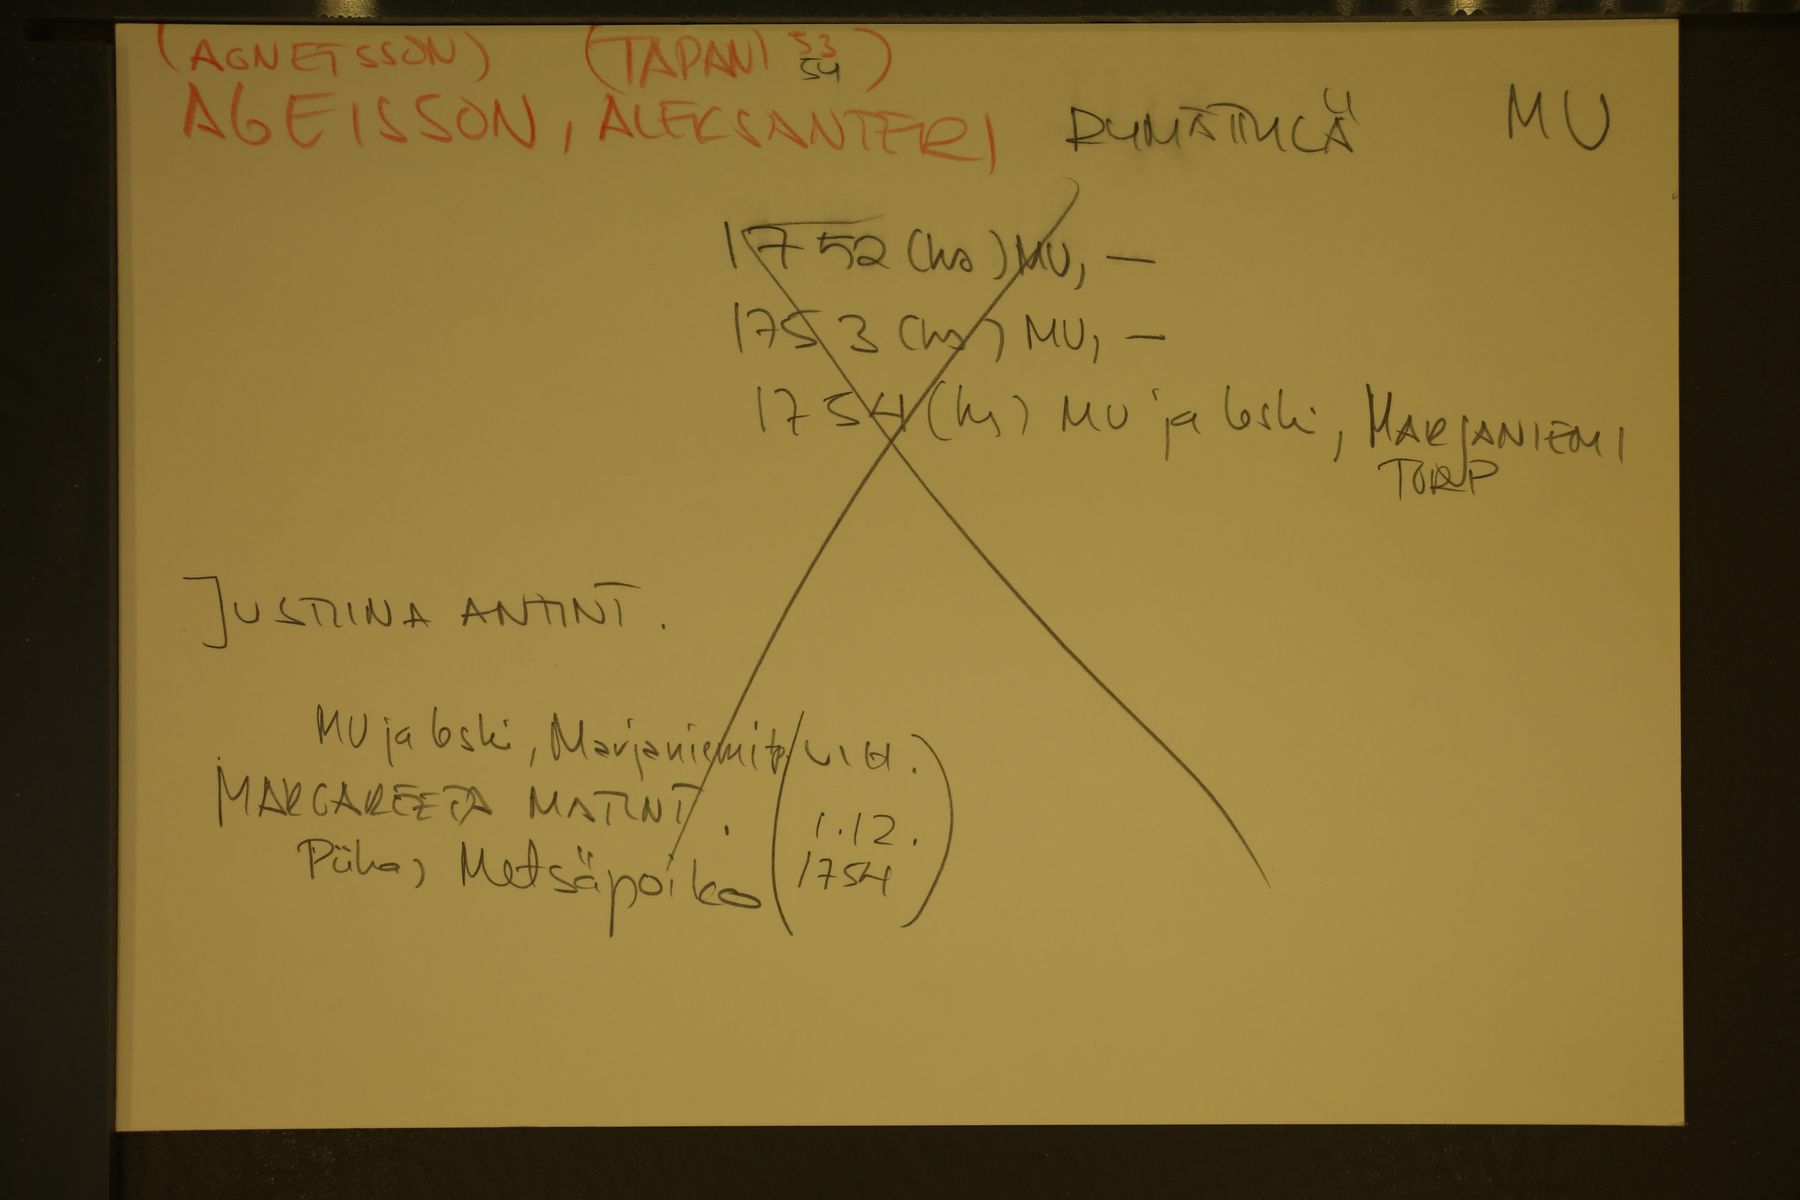 (AGNETSSON) (TAPANI 53
54)
AGEISSON, ALEKSANTERI RYMÄTTYLÄ MU
1752 (hs) MU, —
1753 (hs) MU, —
1754 (hs) MU ja leski, MARJANIEMI
TORP
JUSTIINA ANTINT.
MU ja leski, Marjaniemi tp (VIH.
MARGAREETA MATINT. 1.12.
Piika, Metsäpoiko 1754)